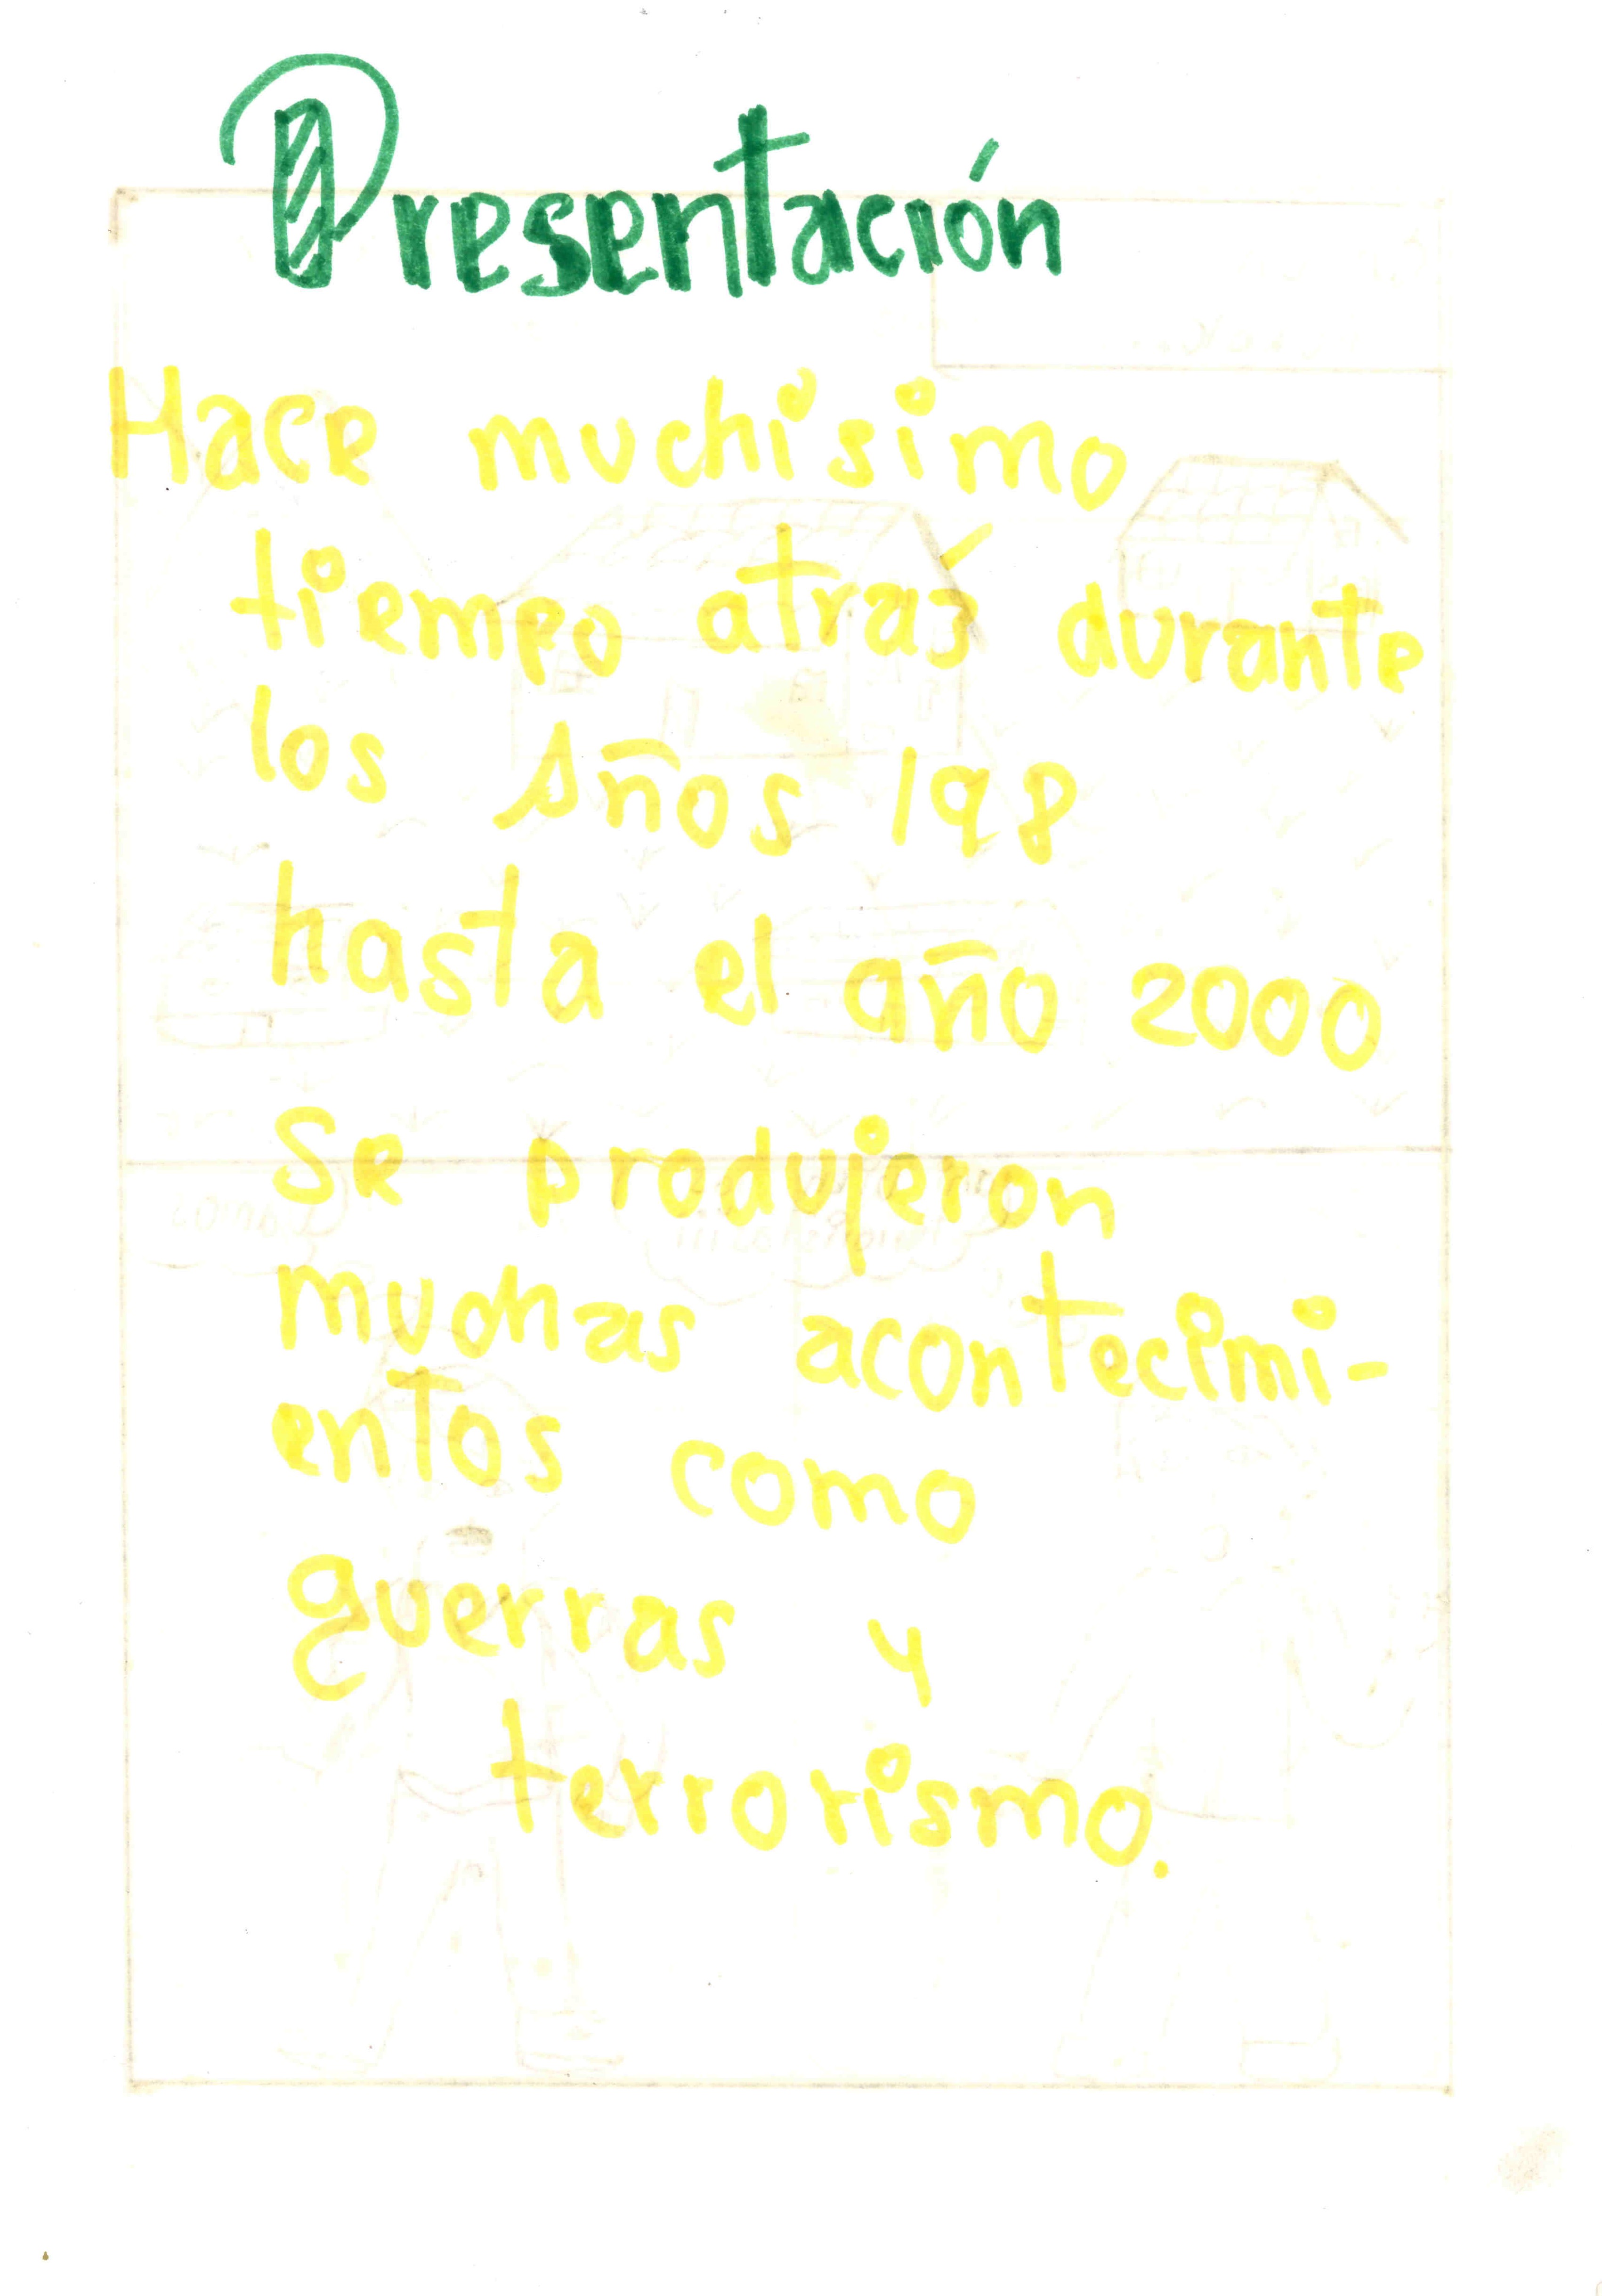 Presentación
Hace muchisimo
tiempo atrás durante
los Años 198
hasta el año 2000
Se produjeron
muchas acontecimi-
entos como
guerras y
terrorismo.